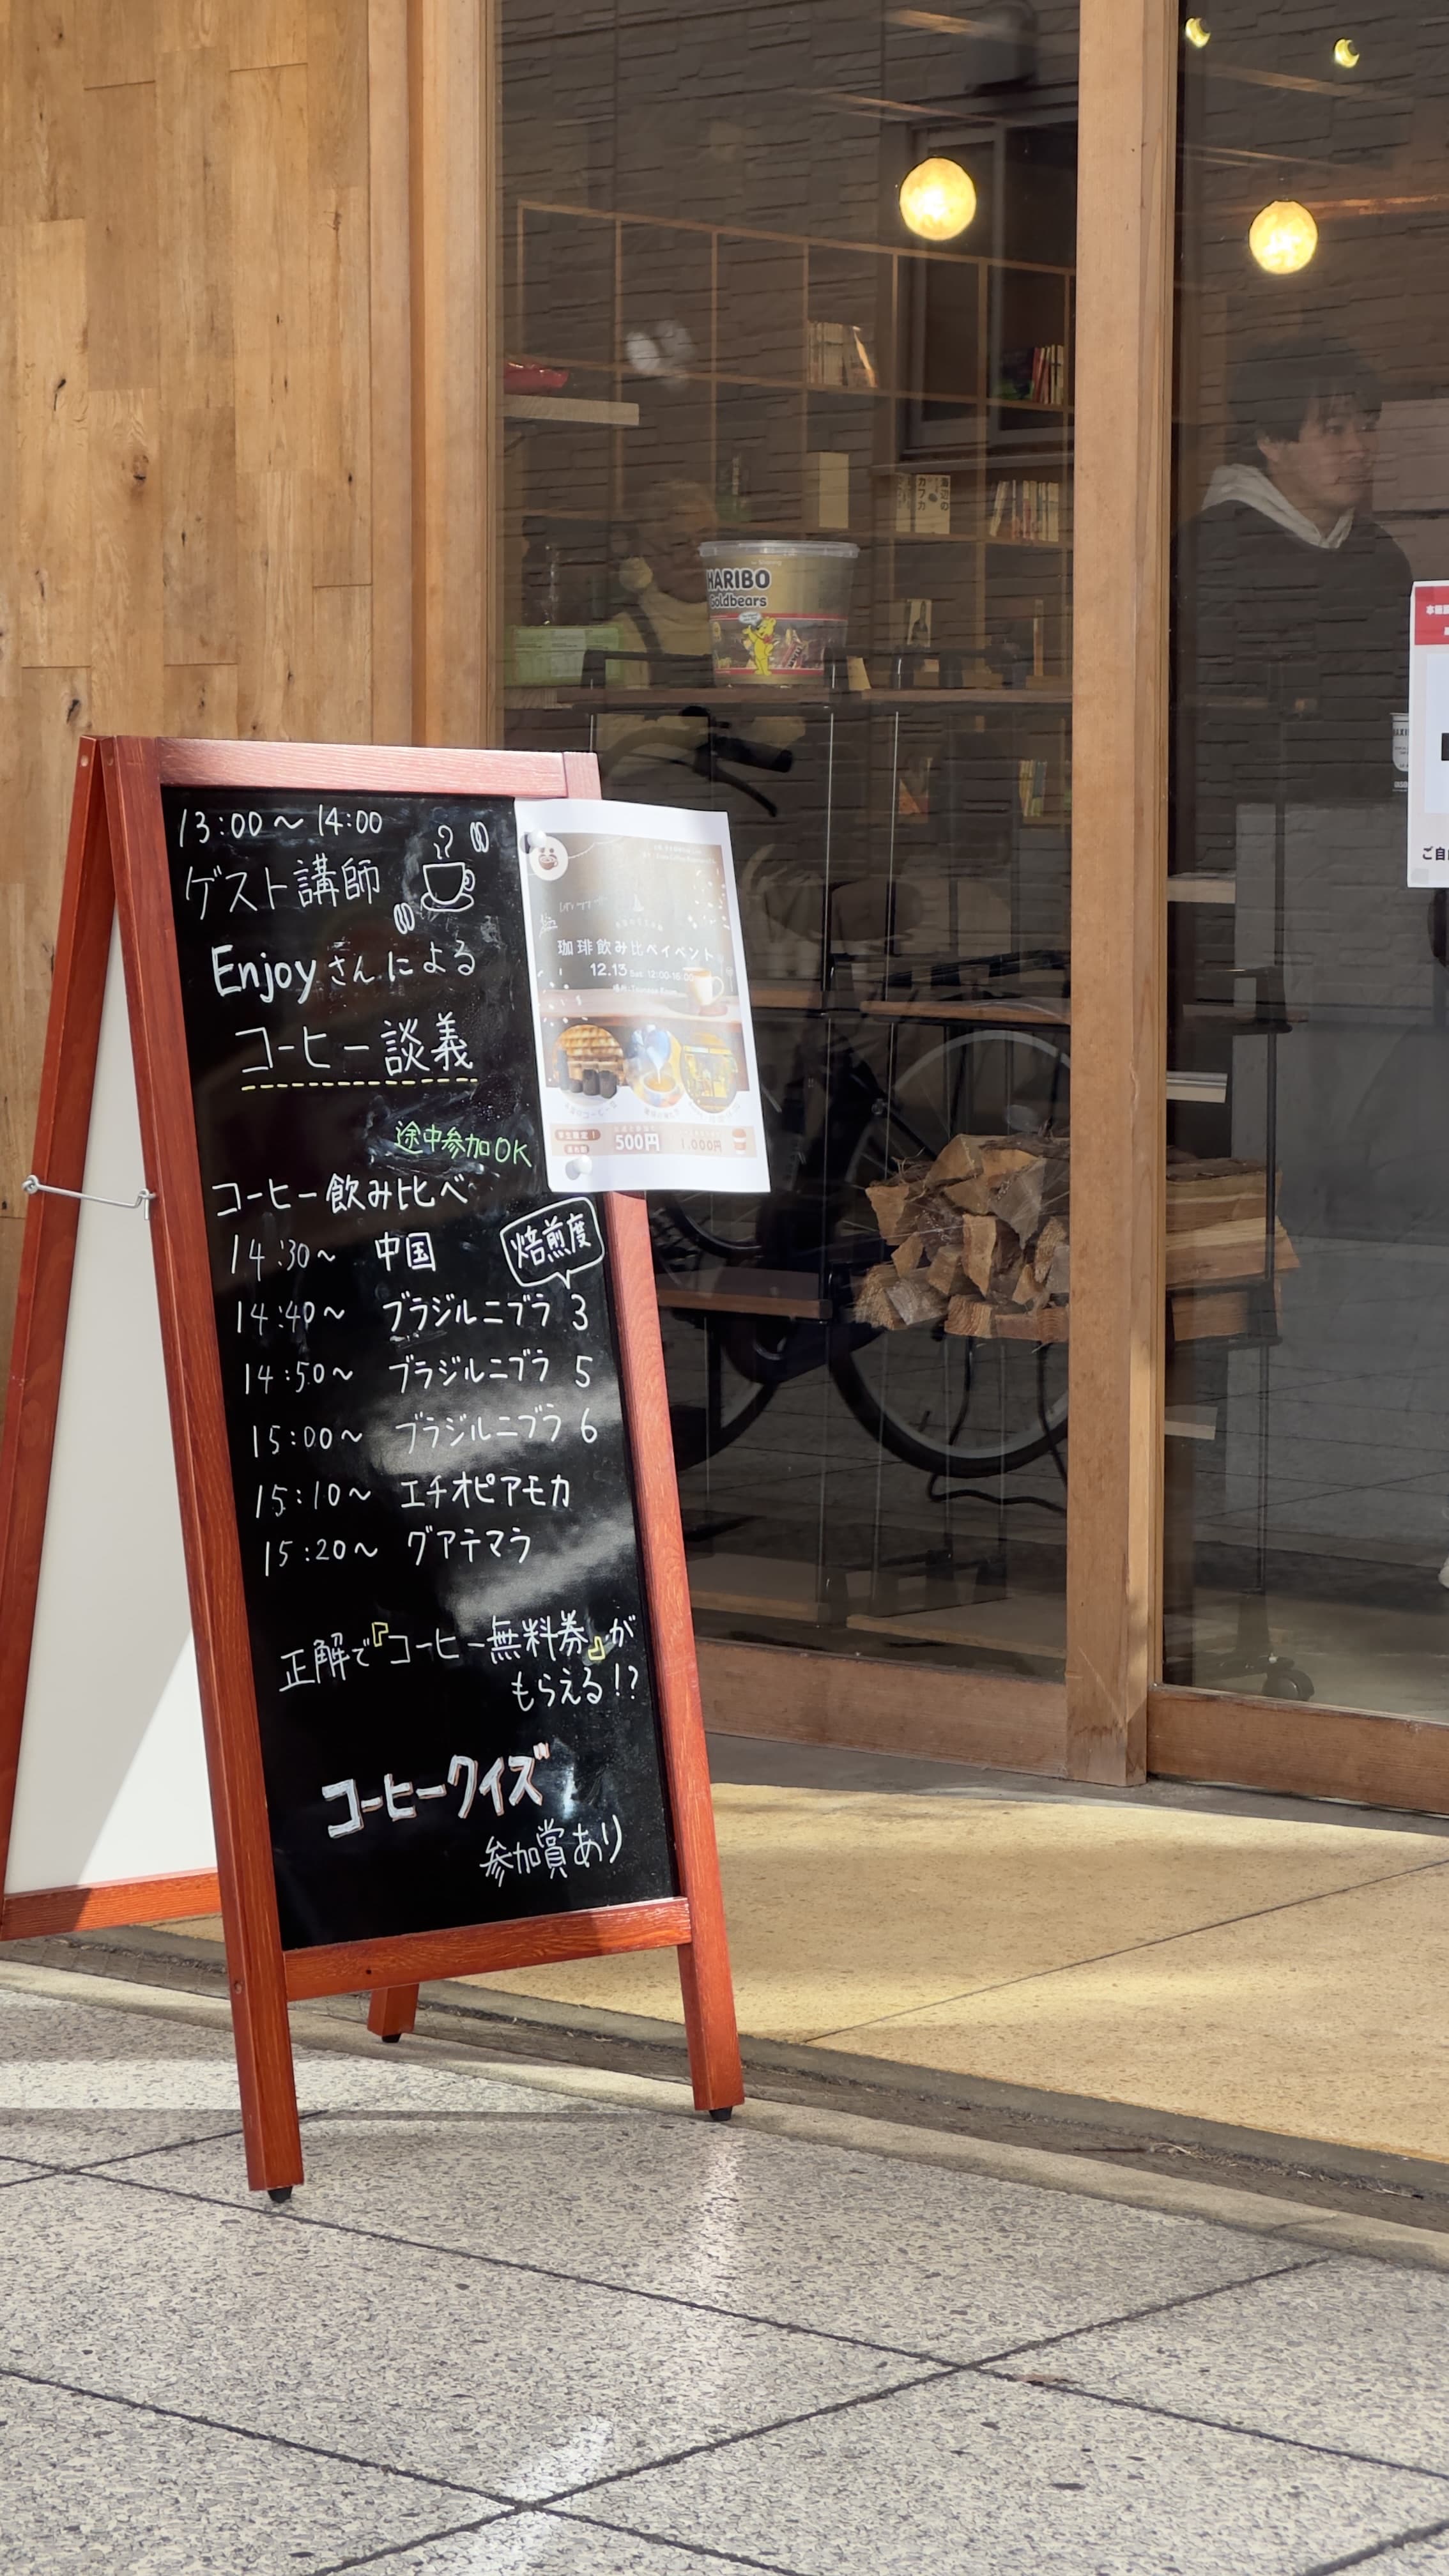 13:00〜14:00
ゲスト講師
Enjoyさんによる
コーヒー談義
途中参加OK
コーヒー飲み比べ
焙煎度
14:30〜 中国
14:40〜 ブラジルニブラ 3
14:50〜 ブラジルニブラ 5
15:00〜 ブラジルニブラ 6
15:10〜 エチオピアモカ
15:20〜 グアテマラ
正解で『コーヒー無料券』が
もらえる!?
コーヒークイズ
参加賞あり
珈琲飲み比べイベント
12.13 Sat 12:00-16:00
500円
1,000円
HARIBO
Goldbears
海辺の
カフカ
ご自